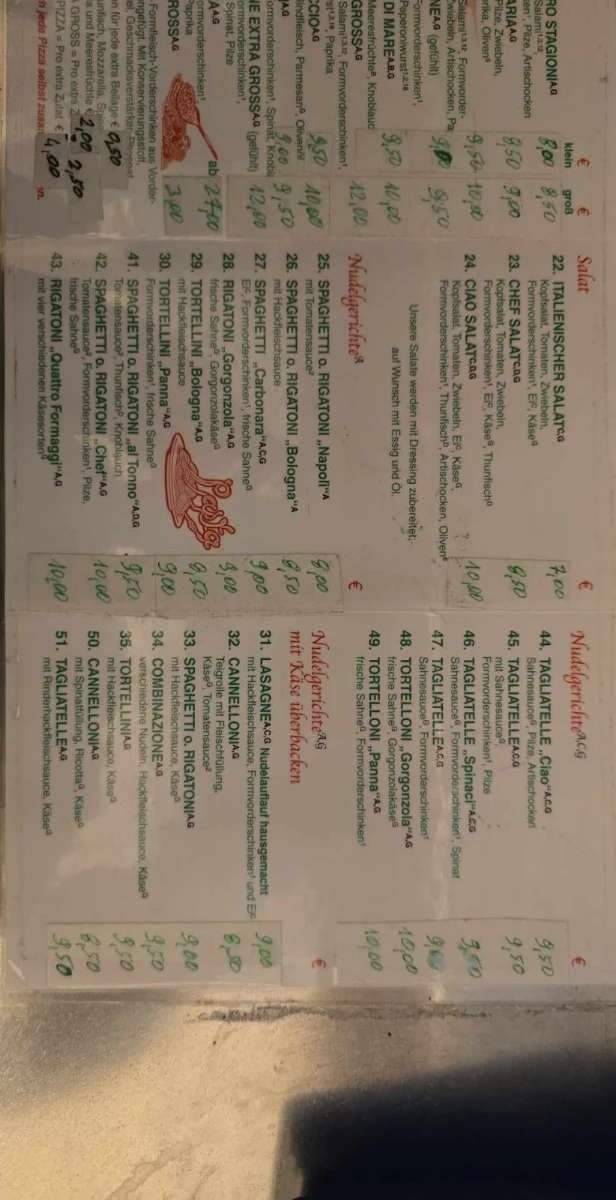 € €
klein groß
RO STAGIONI A,G 8,00 8,50
Salami 1,3,12,
en¹, Pilze, Artischocken
ARIA A,G 8,50 9,00
Pilze, Zwiebeln,
rika, Oliven⁶
9,50 10,00
Salami 1,3,12, Formvorder-
Zwiebeln, Artischocken, Pa
NE A,G (gefüllt) 9,50
ormvorderschinken¹,
Peperoniwurst 1,2,18
DI MARE A,B,G 9,50 10,00
Meeresfrüchte B, Knoblauc
GROSS A,G 12,00
Salami 1,3,12, Formvorderschinken¹,
Paprika
CCIO A,G 9,50 10,00
Rindfleisch, Parmesan G, Olivenöl
A,G 9,00 9,50
ormvorderschinken¹, Spinat, Knobl
NE EXTRA GROSS A,G (gefüllt) 12,00
ormvorderschinken¹,
Spinat, Pilze
A A,G ab 27,00
ormvorderschinken¹,
Paprika
ROSS A,G 3,00
Formfleisch-Vorderschinken aus Vorder-
ngefügt. Mit Konservierungsstoff,
n für jede extra Beilage € 0,50
2,00
A GROSS = Pro extra Z 2,50
PIZZA = Pro extra Zutat € 4,00
n jede Pizza selbst zusam
Salat €
22. ITALIENISCHER SALAT C,G 7,00
Kopfsalat, Tomaten, Zwiebeln,
Formvorderschinken¹, Ei C, Käse G
23. CHEF SALAT C,D,G 9,50
Kopfsalat, Tomaten, Zwiebeln,
Formvorderschinken¹, Ei C, Käse G, Thunfisch D
24. CIAO SALAT C,D,G 10,00
Kopfsalat, Tomaten, Zwiebeln, Ei C, Käse G,
Formvorderschinken¹, Thunfisch D, Artischocken, Oliven⁶
Unsere Salate werden mit Dressing zubereitet,
auf Wunsch mit Essig und Öl.
Nudelgerichte A €
25. SPAGHETTI o. RIGATONI „Napoli“ A 8,00
mit Tomatensauce²
26. SPAGHETTI o. RIGATONI „Bologna“ A 8,50
mit Hackfleischsauce
27. SPAGHETTI „Carbonara“ A,C,G 9,00
Ei C, Formvorderschinken¹, frische Sahne G
28. RIGATONI „Gorgonzola“ A,G 9,00
frische Sahne G, Gorgonzolakäse G
29. TORTELLINI „Bologna“ A,G 9,50
mit Hackfleischsauce
30. TORTELLINI „Panna“ A,G 9,00
Formvorderschinken¹, frische Sahne G
Pasta
41. SPAGHETTI o. RIGATONI „al Tonno“ A,D,G 9,50
Tomatensauce², Thunfisch D, Knoblauch
42. SPAGHETTI o. RIGATONI „Chef“ A,G 10,00
Tomatensauce², Formvorderschinken¹, Pilze,
frische Sahne G
43. RIGATONI „Quattro Formaggi“ A,G 10,00
mit vier verschiedenen Käsesorten G
Nudelgerichte A,C,G €
44. TAGLIATELLE „Ciao“ A,C,G 9,50
Sahnesauce G, Pilze, Artischocken
45. TAGLIATELLE A,C,G 9,50
mit Sahnesauce G,
Formvorderschinken¹, Pilze
46. TAGLIATELLE „Spinaci“ A,C,G 9,50
Sahnesauce G, Formvorderschinken¹, Spinat
47. TAGLIATELLE A,C,G
Sahnesauce G, Formvorderschinken¹
48. TORTELLONI „Gorgonzola“ A,G 10,00
frische Sahne G, Gorgonzolakäse G
49. TORTELLONI „Panna“ A,G 10,00
frische Sahne G, Formvorderschinken¹
Nudelgerichte A,G
mit Käse überbacken €
31. LASAGNE A,C,G Nudelauflauf hausgemacht 9,00
mit Hackfleischsauce, Formvorderschinken¹ und Ei C
32. CANNELLONI A,G 8,50
Teigrolle mit Fleischfüllung,
Käse G, Tomatensauce²
33. SPAGHETTI o. RIGATONI A,G 9,00
mit Hackfleischsauce, Käse G
34. COMBINAZIONE A,G 9,50
verschiedene Nudeln, Hackfleischsauce, Käse G
35. TORTELLINI A,G 9,50
mit Hackfleischsauce, Käse G
50. CANNELLONI A,G 8,50
mit Spinatfüllung, Ricotta G, Käse G
51. TAGLIATELLE A,G 9,50
mit Rinderhackfleischsauce, Käse G